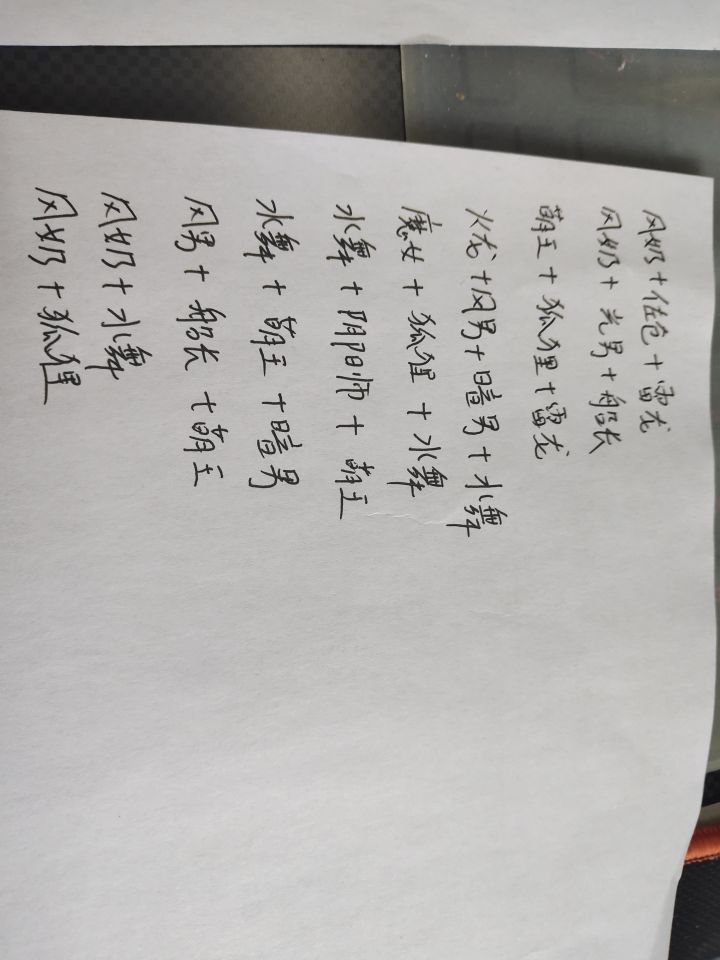 风奶+佐仓+雷龙
风奶+光男+船长
萌王+狐狸+雷龙
火龙+风男+暗男+水舞
魔女+狐狸+水舞
水舞+阴阳师+萌王
水舞+萌王+暗男
风男+船长+萌王
风奶+水舞
风奶+狐狸